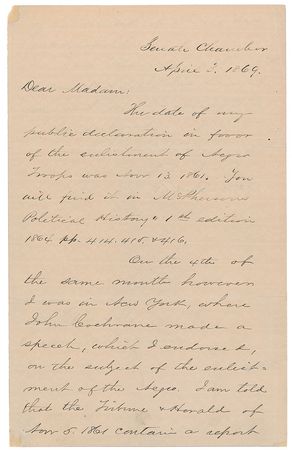 Senate Chamber
April 3. 1869.
Dear Madam:
The date of my
public declaration in favor
of the enlistment of Negro
Troops was Nov 13. 1861. You
will find it in McPhersons
Political History" 1st edition
1864 pp. 414. 415, & 416.
On the 4th of
the same month however
I was in New York, where
John Cochrane made a
speech, which I endorsed,
on the subject of the enlist-
ment of the Negro. I am told
that the Tribune & Herald of
Nov 5. 1861 contain a report